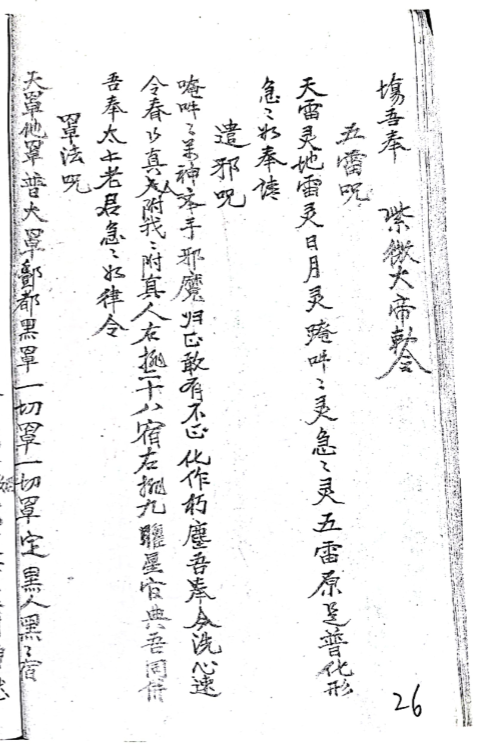 塲吾奉 紫微大帝勅令
五雷咒
天雷灵地雷灵日月灵唵吽〻灵急〻灵五雷原是普化形
急〻如奉法
遣邪咒
唵吽〻 神 手邪魔归正敢有不正化作朽塵吾奉令洗心速
令春 真人 附我〻附真人右 二十八宿右 九曜星官典吾同
吾奉太上老君急〻如律令
罩法咒
天罩地罩普大罩酆都黑罩一切罩一切罩定黑人黑〻宿
26